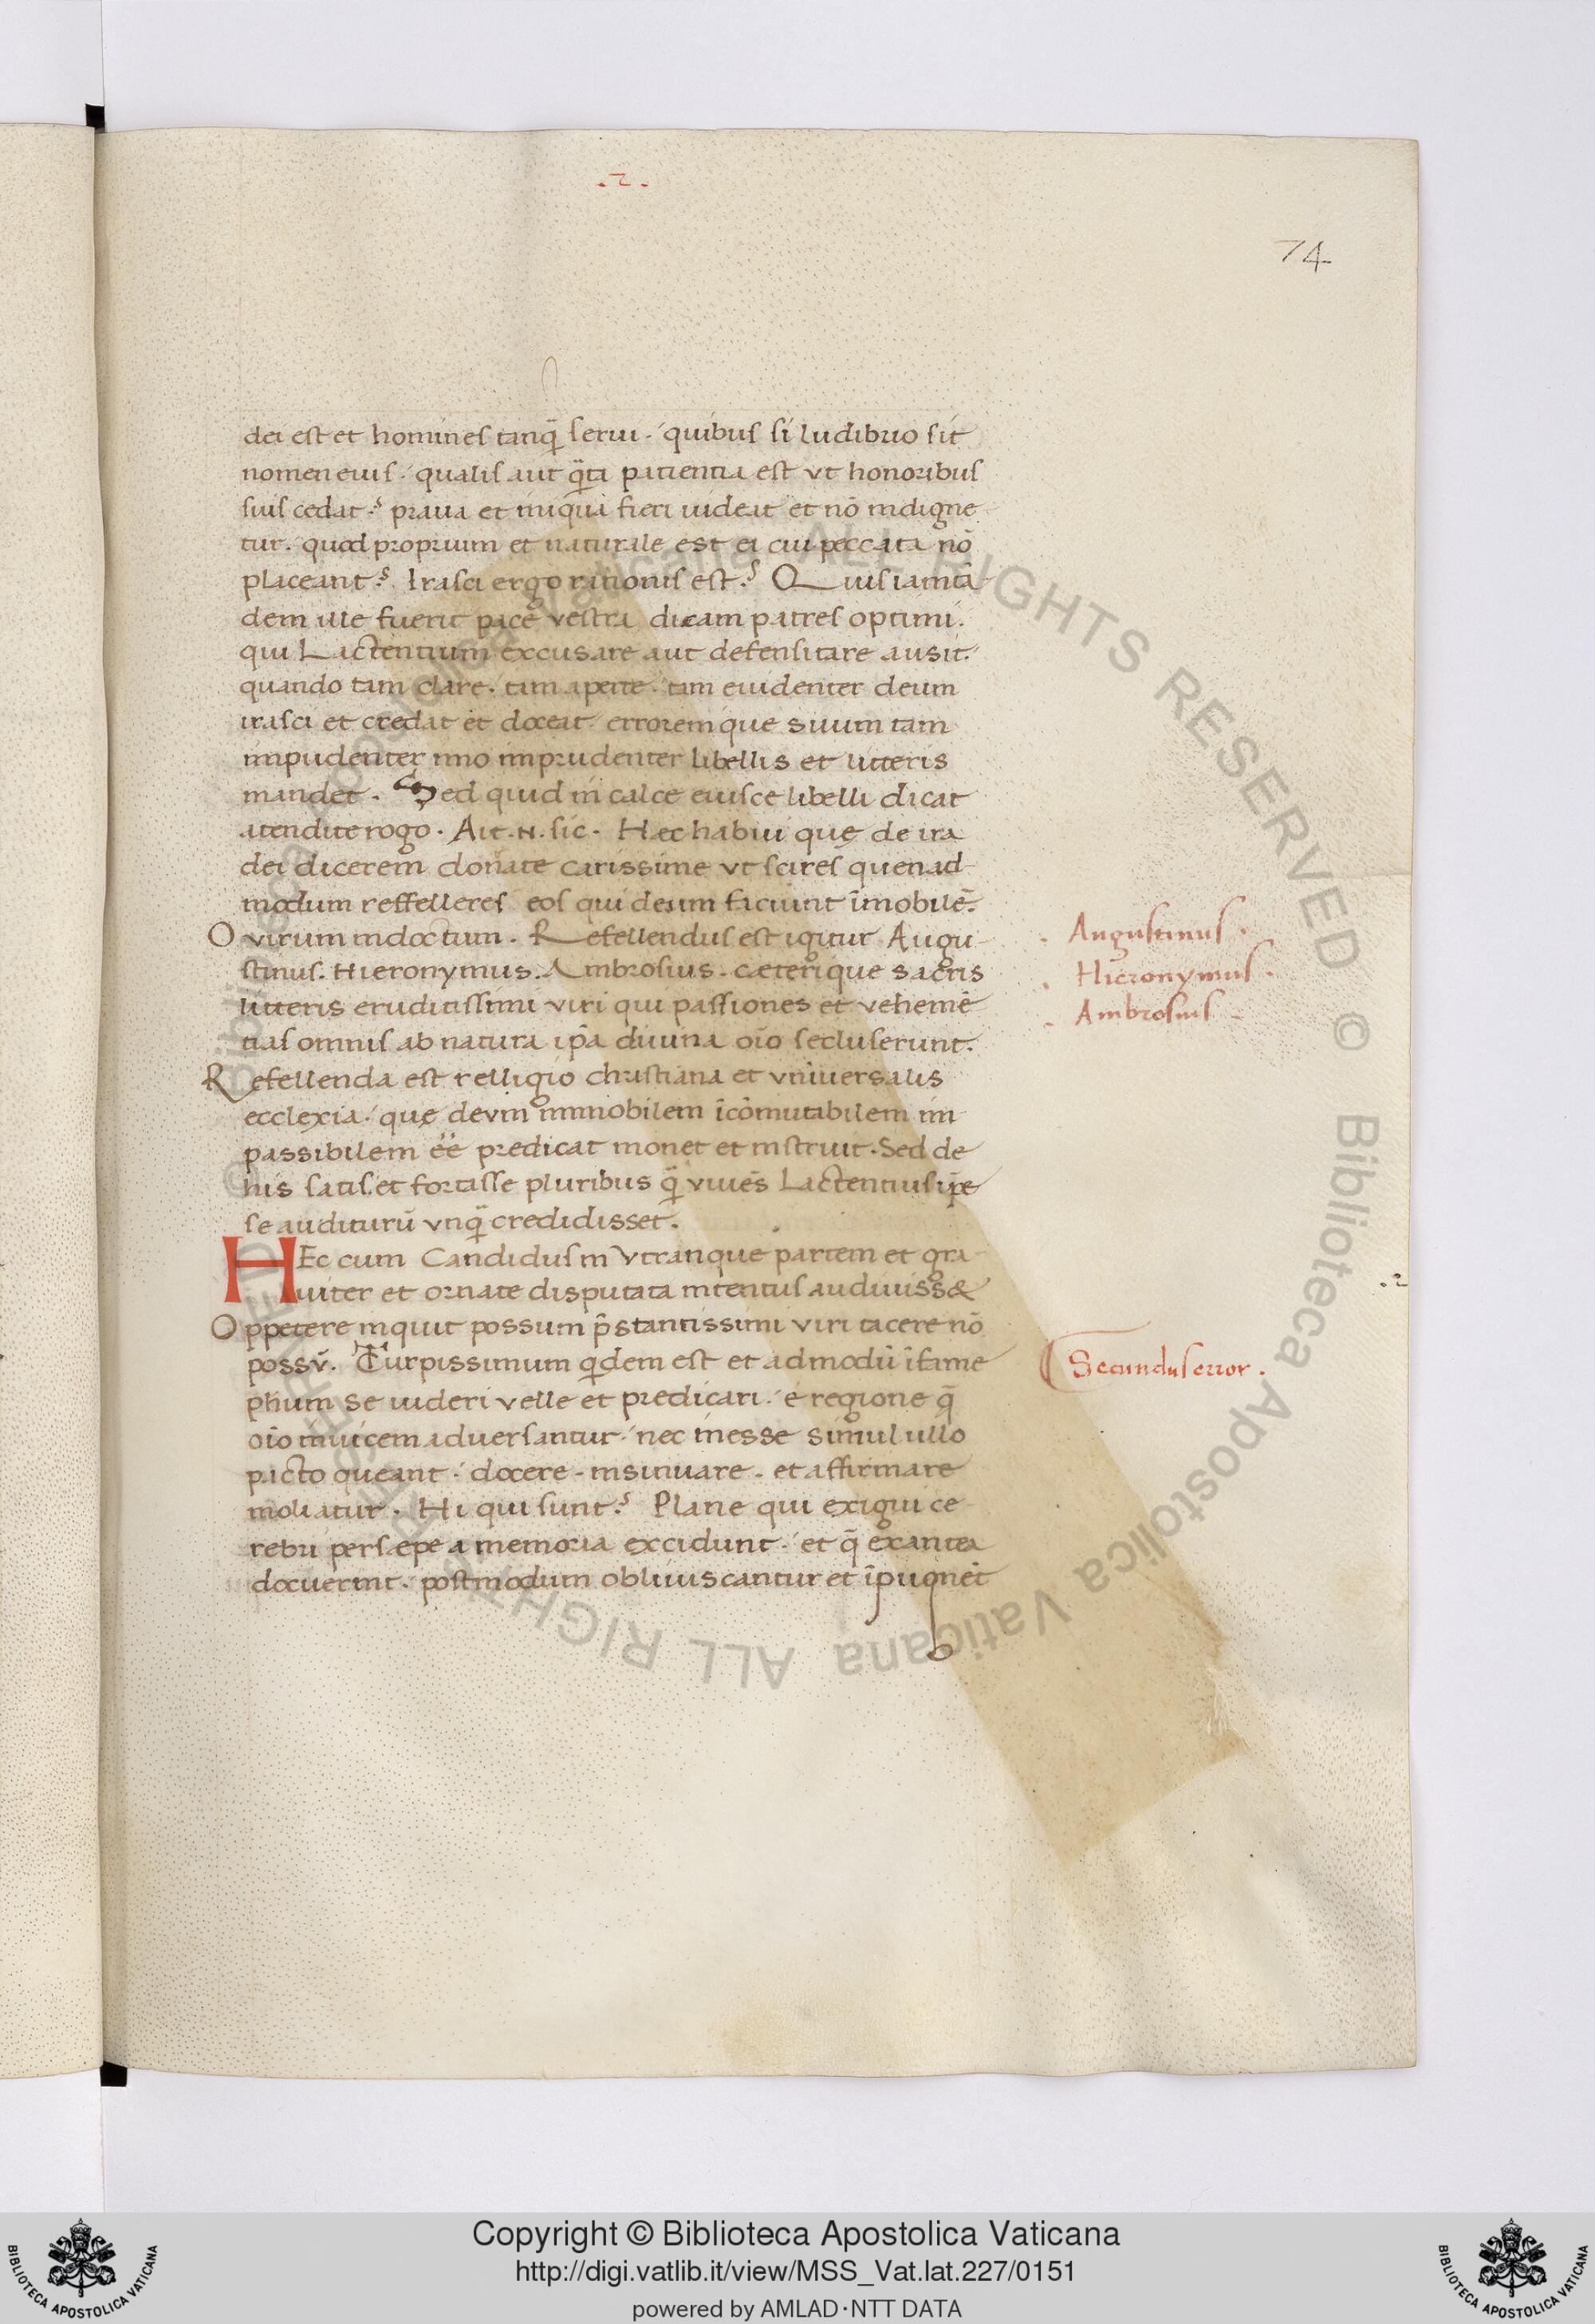 .2.
74
dei est et homines tanq̃ serui. quibus si ludibrio sit
nomen eius. qualis aut q̃ta patientia est vt honoribus
suis cedat? praua et iniqua fieri uideat et nō indigne
tur. quod proprium et naturale est ei cui peccata nō
placeant? Irasci ergo rationis est? Quis iam tā
dem ille fuerit pace vestra dicam patres optimi.
qui Lactentium exccusare aut defensitare ausit.
quando tam clare. tam aperte. tam euidenter deum
irasci et credat et doceat erroremque suum tam
impudenter imo imprudenter libellis et litteris
mandet. Sed quid in calce eiusce libelli dicat
atendite rogo. Ait .N. sic. Hec habui quę de ira
dei dicerem donate carissime vt scires quenad
modum reffelleres eos qui deum faciunt īmobilē.
O virum indoctum. Refellendus est igitur Augu
stinus. Hieronymus. Ambrosius. cæterique sacris
litteris eruditissimi viri qui passiones et vehemē
tias omnis ab natura ip̄a diuina oīo secluserunt.
Refellenda est relligio christiana et vniuersalis
ecclexia. quę deum immobilem īcōmutabilem im
passibilem ēē predicat monet et instruit. Sed de
his satis. et fortasse pluribus q̃ viuēs Lactentius ip̄e
se auditurū vnq̃ credidisset.
HEc cum Candidus in vtranque partem et gra
uiter et ornate disputata intentus audiuiss&
Oppetere inquit possum p̄stantissimi viri tacere nō
possū. Turpissimum q̇dem est et admodū īfame
phūm se uideri velle et predicari. e regione q̄
oīo inuicem aduersantur. nec inesse simul ullo
pacto queant. docere. insinuare. et affirmare
moliatur. Hi qui sunt? Plane qui exigui ce
rebri persæpe a memoria excidunt. et q̄ exantea
docuerint. postmodum obliuiscantur et īpugnēt
. Augustinus.
. Hieronymus.
. Ambrosius.
.2
Secundus error.
Copyright © Biblioteca Apostolica Vaticana
http://digi.vatlib.it/view/MSS_Vat.lat.227/0151
powered by AMLAD·NTT DATA
BIBLIOTECA APOSTOLICA VATICANA
BIBLIOTECA APOSTOLICA VATICANA